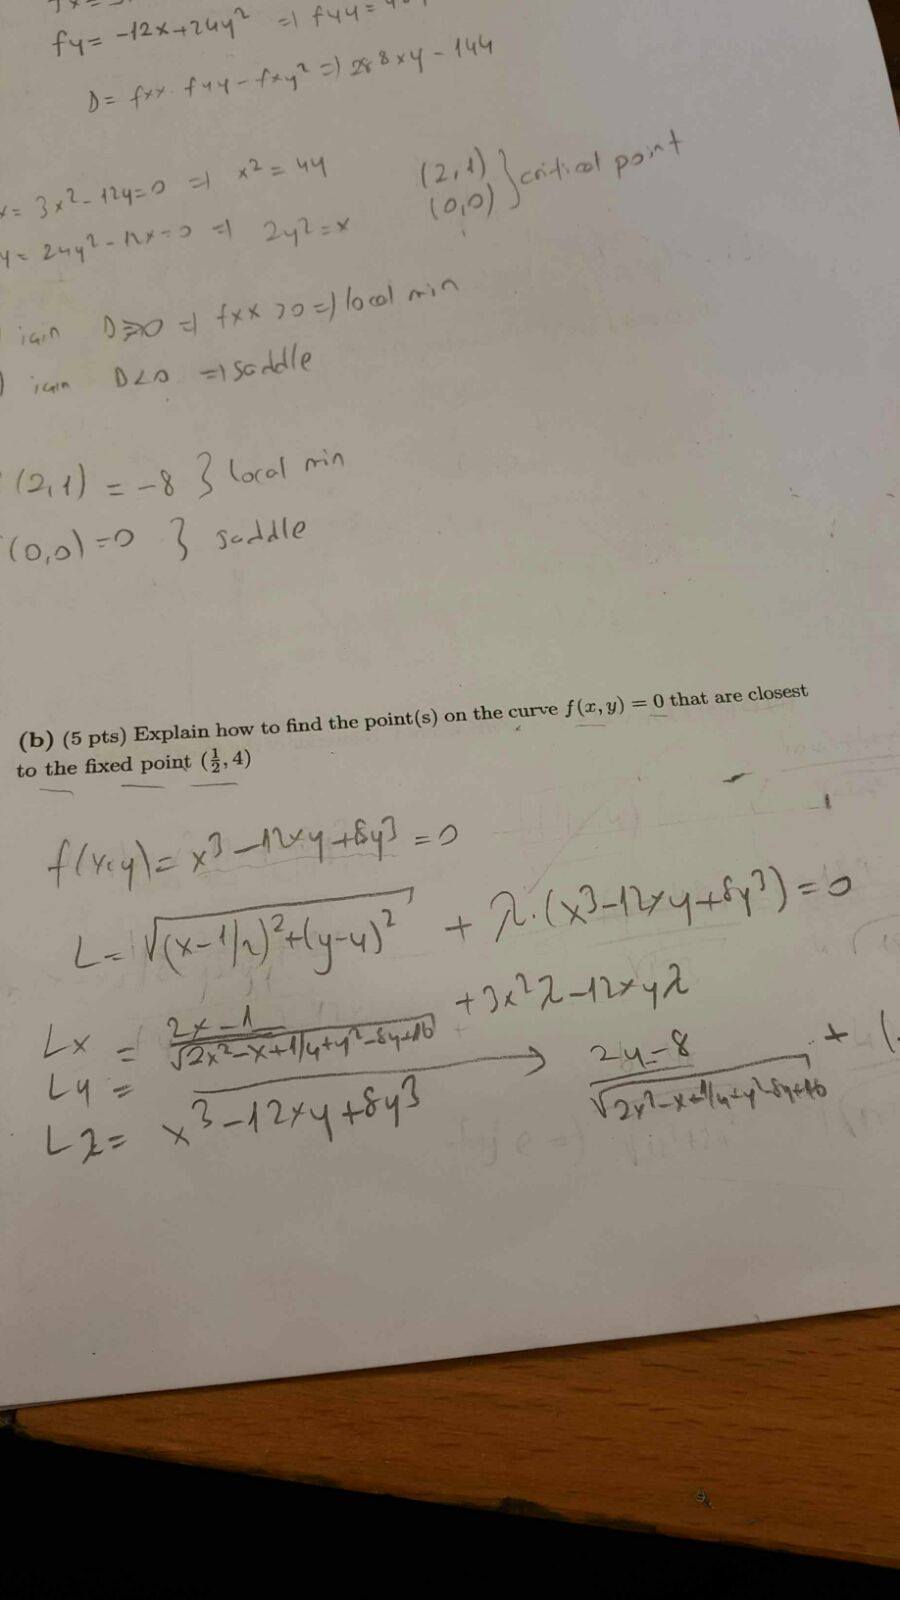 fy = -12x+24y² => fyy = 
D = fxx · fyy - fxy² => 288xy - 144
x = 3x² - 12y = 0 => x² = 4y
(2,1) } critical point
(0,0)
y = 24y² - 12x = 0 => 2y² = x
için D>0 => fxx >0 => local min
) için D<0 => saddle
(2,1) = -8 } local min
(0,0) = 0 } saddle
(b) (5 pts) Explain how to find the point(s) on the curve f(x, y) = 0 that are closest
to the fixed point (½, 4)
f(x,y) = x³ - 12xy + 8y³ = 0
L = √(x-1/2)² + (y-4)² + λ·(x³-12xy+8y³) = 0
Lx = 2x-1 / √2x²-x+1/4+y²-8y+16 + 3x²λ - 12xyλ
Ly = → 2y-8 / √2x²-x+1/4+y²-8y+16 + (
Lλ = x³ - 12xy + 8y³